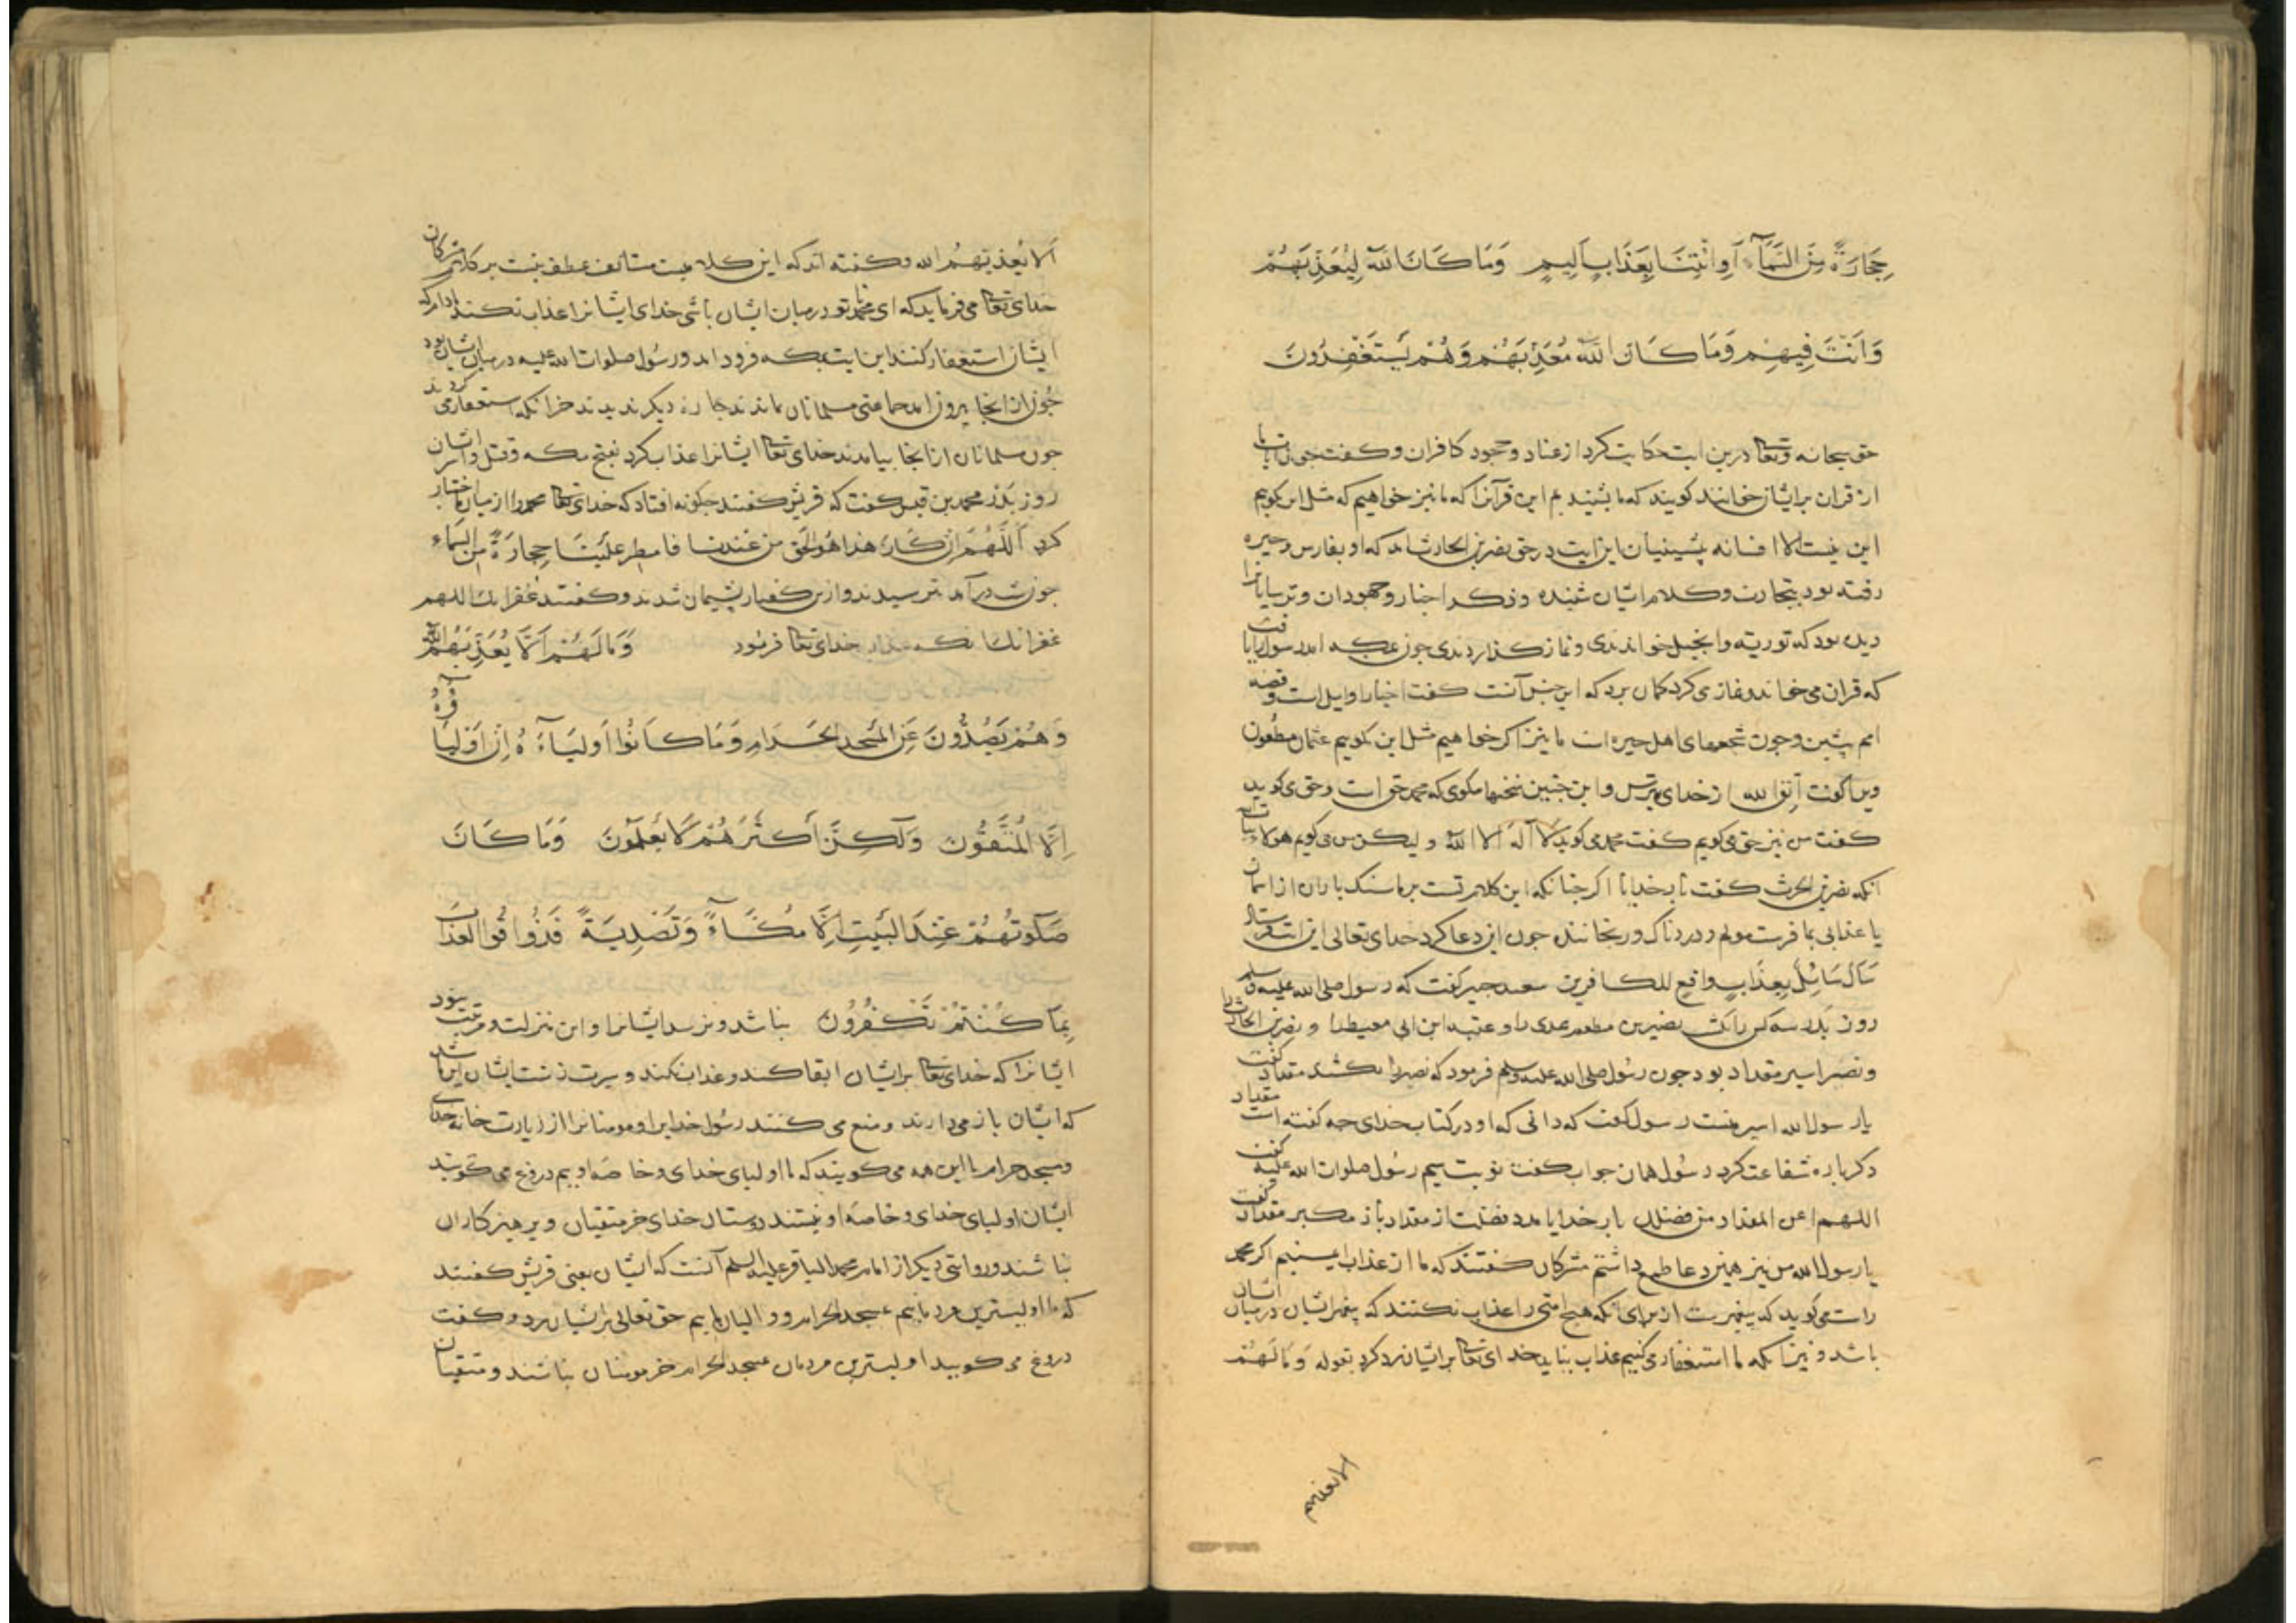 حِجَارَةً مِنَ السَّمَآءِ اَوِ ائْتِنَا بِعَذَابٍ اَلِيمٍ وَمَا كَانَ اللَّهُ لِيُعَذِّبَهُمْ
وَاَنْتَ فِيهِمْ وَمَا كَانَ اللَّهُ مُعَذِّبَهُمْ وَهُمْ يَسْتَغْفِرُونَ
حق سبحانه وتعالی درین ایت حکایت کرد از عناد و جحود کافران و کفت چون ایات ما
از قران برایشان خوانند کویند که ما بشنیدیم این قرآنرا که ما نیز خواهیم که مثل این کویم
این نیست الا افسانه پیشینیان این ایت در حق نضر بن الحارث امد که او بفارس و حیره
رفته بود بتجارت و کلام ایشان شنیده و ذکر اخبار و جهودان و ترسایانرا
دیده بود که توریة و انجیل خواندندی و نماز کذاردندی چون بمکه امد رسول را یافت
که قران می خواند و نماز می کرد کمان برد که این جنس آنست کفت اخبار اوایل است و قصه
امم پیشین و چون سجعهای اهل حیره است ما نیز اکر خواهیم مثل این بکوییم عثمان مظعون
ویرا کفت اتق الله از خدای بترس و این چنین سخنها مکوی که محمد حق است و حق می کوید
کفت من نیز حق می کویم کفت محمد می کوید لا اله الا الله و لیکن من می کویم هولاء بنات الله
انکه نضر بن الحرث کفت بار خدایا اکر چنانکه این کلام تست بر ما سنک باران از اسمان
یا عذابی بما فرست مولم و دردناک و رنجاننده چون این دعا کرد خدای تعالی این ایت فرستاد
سَاَلَ سَائِلٌ بِعَذَابٍ واقع للکافرین سعید جبیر کفت که رسول صلی الله علیه وسلم
روز بدر سه کس را بکشت نضیر بن مطعم عدی را و عتبه ابن ابی معیط را و نضر بن الحارث را
و نضر اسیر مقداد بود چون رسول صلی الله علیه وسلم فرمود که نضر را بکشند مقداد کفت
یا رسول الله اسیر منست رسول کفت که دانی که او در کتاب خدای چه کفته است مقداد
دکر باره شفاعت کرد رسول همان جواب کفت نوبت سیم رسول صلوات الله علیه کفت
اللهم اغن المقداد من فضلک بار خدایا مدد فضلت از مقداد باز مکیر مقداد کفت
یا رسول الله من نیز همین دعا طمع داشتم مشرکان کفتند که ما از عذاب ایمنیم اکر محمد
راست می کوید که پیغمبرست از برای انکه هیچ امتی را عذاب نکنند که پیغمبر ایشان در میان ایشان
باشد و نیز انکه ما استغفار می کنیم عذاب نیاید خدای تعالی برایشان رد کرد بقوله وَمَا لَهُمْ
الا یعذبهم
اَلا یُعذبَهُمُ الله و کفته اند که این کلام مستانف عطف نیست بر کلام مشرکان
خدای تعالی می فرماید که ای محمد تا تو در میان ایشان باشی خدای ایشانرا عذاب نکند مادام که
ایشان استغفار کنند این ایت بمکه فرود امد و رسول صلوات الله علیه در میان ایشان بود
چون از انجا بیرون امد جماعتی مسلمانان ماندند چاره دیکر ندیدند جز انکه استغفار می کردند
چون مسلمانان از انجا بیامدند خدای تعالی ایشانرا عذاب کرد بفتح مکه و قتل و اسر ایشان
روز بدر محمد بن قیس کفت که قریش کفتند چکونه افتاد که خدای تعالی محمد را از میان ما اختیار
کرد اللَّهُمَّ اِن کَانَ هَذا هُوَ الحَق من عندک فامطر علَینَا حِجارَةً من السَّمَاء
چون شب درآمد بترسیدند و از ین کفتار پشیمان شدند و کفتند غفرانک اللهم
غفرانک خدای تعالی فرمود وَمَا لَهُمْ اَلَّا يُعَذِّبَهُمُ اللَّهُ
وَهُمْ يَصُدُّونَ عَنِ الْمَسْجِدِ الْحَرَامِ وَمَا كَانُوا اَوْلِيَآءَهُ اِنْ اَوْلِيَآؤُهُ
اِلَّا الْمُتَّقُونَ وَلَكِنَّ اَكْثَرَهُمْ لَا يَعْلَمُونَ وَمَا كَانَ
صَلَوتُهُمْ عِنْدَ الْبَيْتِ اِلَّا مُكَآءً وَتَصْدِيَةً فَذُوقُوا الْعَذَابَ
بِمَا كُنْتُمْ تَكْفُرُونَ نباشد و نرسد ایشانرا و این منزلت و مرتبت نبود
ایشانرا که خدای تعالی برایشان ابقا کند و عذاب نکند و سیرت زشت ایشان این باشد
که ایشان باز می دارند و منع می کنند رسول خدایرا و مومنانرا از زیارت خانه خدای
و مسجد حرام با این همه می کویند که ما اولیای خدای و خاصه اوییم دروغ می کویند
ایشان اولیای خدای و خاصه او نیستند دوستان خدای جز متقیان و پرهیزکاران
نباشند و روایتی دیکر از امام محمد الباقر علیه السلم آنست که ایشان یعنی قریش کفتند
که ما اولیترین مردمانیم بمسجد الحرام و والیان ماییم حق تعالی برایشان رد و کفت
دروغ می کویید اولیترین مردمان بمسجد الحرام جز مومنان نباشند و متقیان